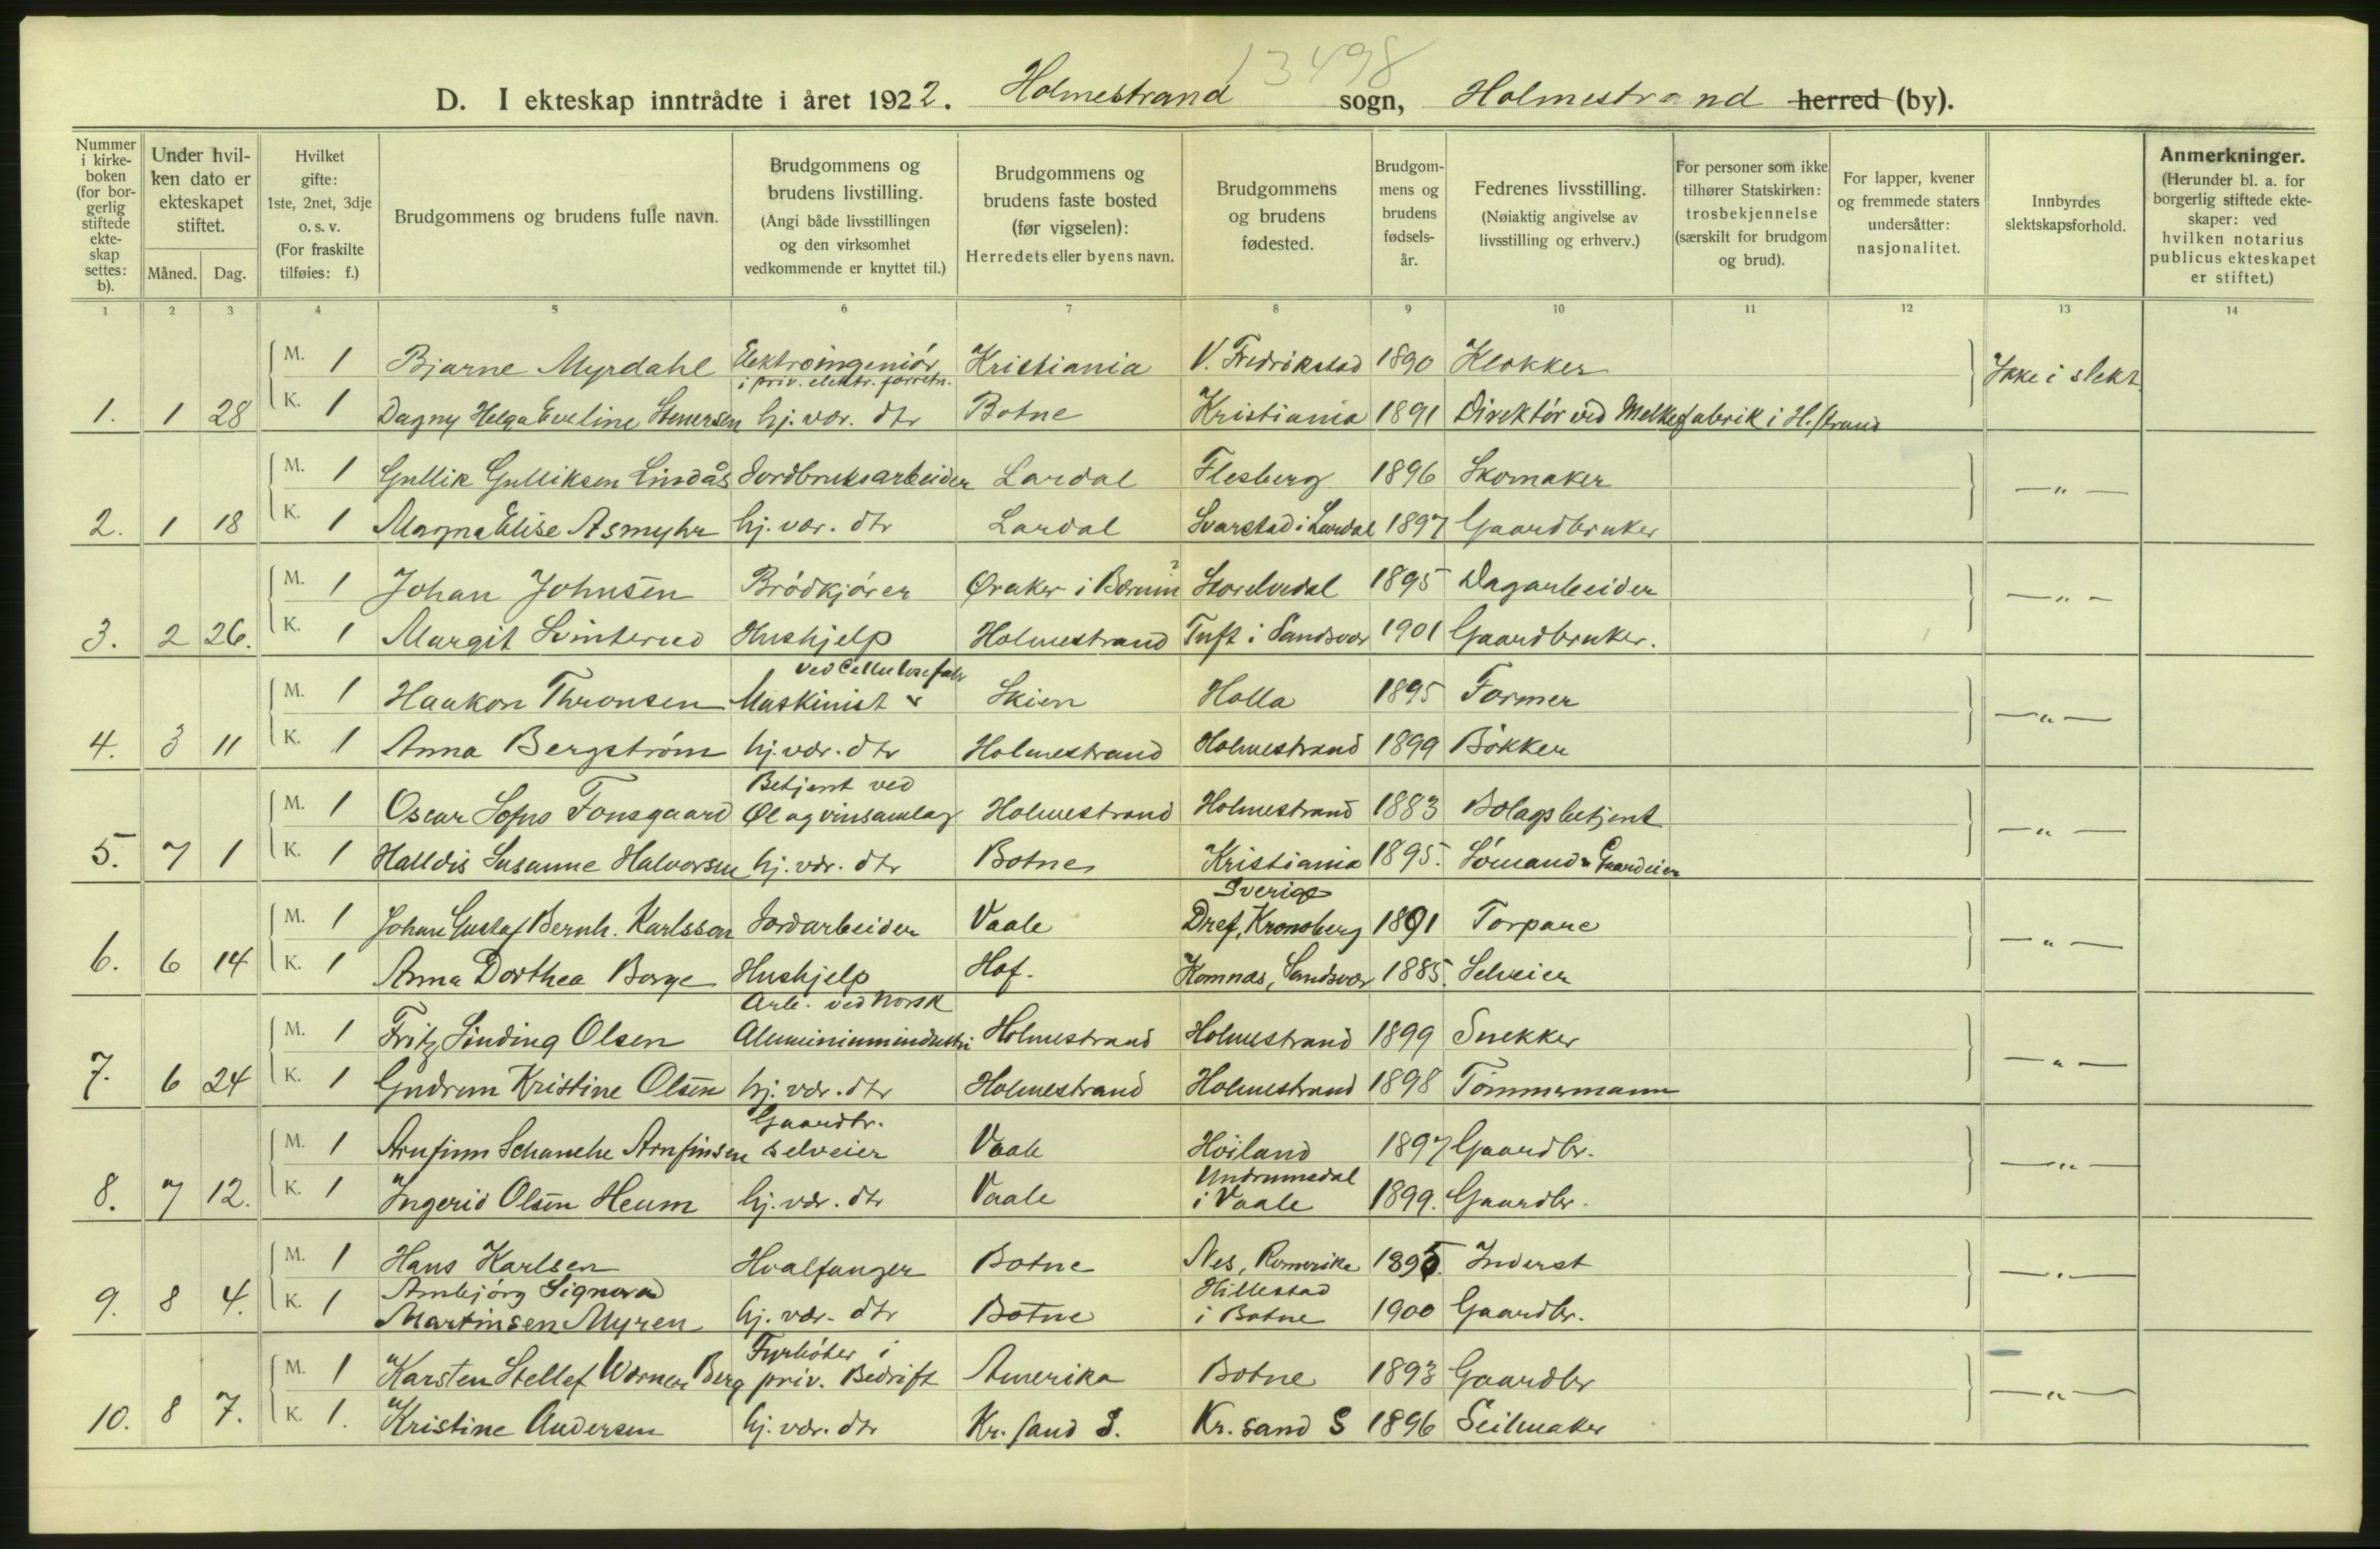 13498
D. I ekteskap inntrådte i året 1922. Holmestrand sogn, Holmestrand herred (by).
Nummer i kirke-boken (for bor-gerlig stiftede ekte-skap settes: b).
Under hvil-ken dato er ekteskapet stiftet.
Måned. Dag.
Hvilket gifte: 1ste, 2net, 3dje o. s. v. (For fraskilte tilføies: f.)
Brudgommens og brudens fulle navn.
Brudgommens og brudens livstilling. (Angi både livsstillingen og den virksomhet vedkommende er knyttet til.)
Brudgommens og brudens faste bosted (før vigselen): Herredets eller byens navn.
Brudgommens og brudens fødested.
Brudgom-mens og brudens fødsels-år.
Fedrenes livsstilling. (Nøiaktig angivelse av livsstilling og erhverv.)
For personer som ikke tilhører Statskirken: trosbekjennelse (særskilt for brudgom og brud).
For lapper, kvener og fremmede staters undersåtter: nasjonalitet.
Innbyrdes slektskapsforhold.
Anmerkninger. (Herunder bl. a. for borgerlig stiftede ekte-skaper: ved hvilken notarius publicus ekteskapet er stiftet.)
1 2 3 4 5 6 7 8 9 10 11 12 13 14
M. 1 Bjarne Myrdahl Elektroingeniør i priv. elektr. forretn. Kristiania V. Fredrikstad 1890 Klokker Ikke i slekt
1. 1 28 K. 1 Dagny Helga Eveline Stenersen hj. vær. dtr Botne Kristiania 1891 Direktør ved Melkefabrik i H.strand
M. 1 Gullik Gulliksen Lindås Jordbruksarbeider Lardal Flesberg 1896 Skomaker — " —
2. 1 18 K. 1 Magna Elise Asmyhr hj. vær. dtr Lardal Svarstad i Lardal 1897 Gaardbruker
M. 1 Johan Johnsen Brødkjører Øraker i Bærum ? Storelvdal 1895 Dagarbeider — " —
3. 2 26. K. 1 Margit Svinterud Hushjelp Holmestrand Tuft i Sandsvær 1901 Gaardbruker.
M. 1 Haakon Thronsen Maskinist ved Cellulosefabr Skien Holla 1895 Former — " —
4. 3 11 K. 1 Anna Bergstrøm hj. vær. dtr Holmestrand Holmestrand 1899 Bøkker
M. 1 Oscar Sofus Fonsgaard Betjent ved Øl og vinsamlag Holmestrand Holmestrand 1883 Bolagsbetjent — " —
5. 7 1 K. 1 Halldis Susanne Halvorsen hj. vær. dtr Botne Kristiania 1895. Sømand & Gaardeier
M. 1 Johan Gustaf Bernh. Karlsson Jordarbeider Vaale Sverige Dref, Kronoberg 1891 Torpare — " —
6. 6 14 K. 1 Anna Dorthea Borge Hushjelp Hof. Komnæs, Sandsvær 1885. Selveier
M. 1 Fritz Sinding Olsen Arb. ved Norsk Aluminiumindustri Holmestrand Holmestrand 1899 Snekker — " —
7. 6 24 K. 1 Gudrun Kristine Olsen hj. vær. dtr Holmestrand Holmestrand 1898 Tømmermann
M. 1 Arnfinn Schanche Arnfinsen Gaardbr. selveier Vaale Høiland 1897 Gaardbr. — " —
8. 7 12. K. 1 Ingerid Olsen Heum hj. vær. dtr Vaale Undrumsdal i Vaale 1899. Gaardbr.
M. 1 Hans Karlsen Hvalfanger Botne Nes, Romerike 1895. Inderst — " —
9. 8 4. K. 1 Arnbjørg Signora Martinsen Myren hj. vær. dtr Botne Hillestad i Botne 1900 Gaardbr.
M. 1 Karsten Stellef Werner Berg Fyrbøter i priv. Bedrift Amerika Botne 1893 Gaardbr — " —
10. 8 7. K. 1. Kristine Andersen hj. vær. dtr Kr.sand S. Kr. sand S 1896 Seilmaker